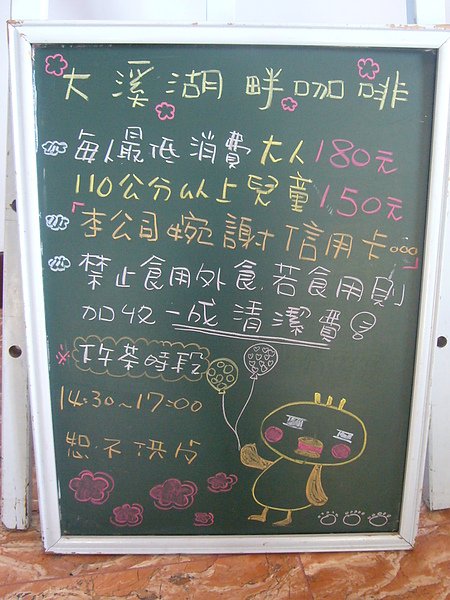 大溪湖畔咖啡
每人最低消費大人180元
110公分以上兒童150元
「本公司婉謝信用卡...」
禁止食用外食,若食用則
加收一成清潔費!
※下午茶時段
14:30~17:00
恕不供